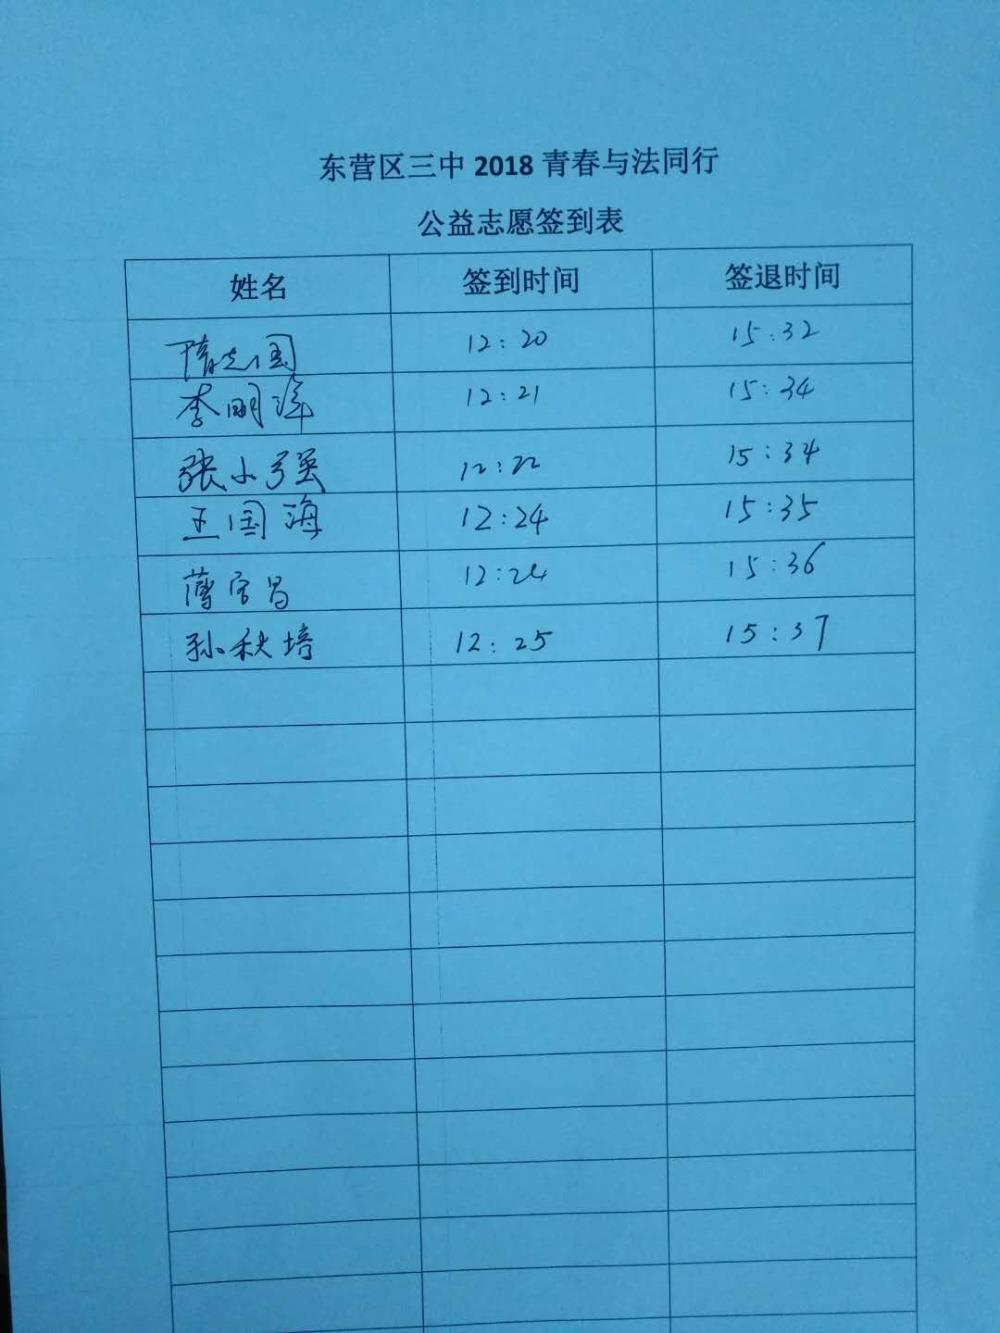 东营区三中 2018 青春与法同行
公益志愿签到表
姓名 签到时间 签退时间
隋志国 12:20 15:32
李明洋 12:21 15:34
张小强 12:22 15:34
王国海 12:24 15:35
12:24 15:36
孙秋培 12:25 15:37